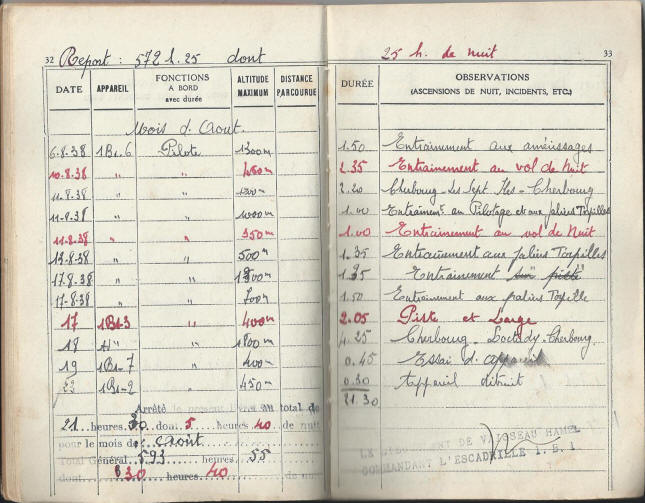 32 Report : 572 h. 25 dont 25 h. de nuit 33
DATE APPAREIL FONCTIONS A BORD avec durée ALTITUDE MAXIMUM DISTANCE PARCOURUE DURÉE OBSERVATIONS (ASCENSIONS DE NUIT, INCIDENTS, ETC.)
Mois d. Août.
6.8.38 1B1.6 Pilote 1.50 Entraînement aux amérissages
10.8.38 " " 2.35 Entrainement au vol de Nuit
11.8.38 " " 2.20 Cherbourg - Les Sept Iles - Cherbourg
11.8.38 " " 1000m 1.00 Entrainemt. au Pilotage et aux paliers Torpilles
11.8.38 " " 350m 1.00 Entrainement au vol de Nuit
8.38 " " 500m 1.35 Entrainement aux paliers Torpilles
17.8.38 " " Entrainement
17.8.38 " " 1.50 Entrainement aux paliers Torpille
17 1B1-3 " 400m 2.05 Piste et Large
18 " 1800m 4.25 Cherbourg - Loctudy - Cherbourg
19 1B1-7 " 400m 0.45 Essai d'appareil
22 1B1-2 " 450m 0.30 Appareil détruit
21.30
Arrêté le présent livre au total de
21 heures 30 dont 5 heures 40 de nuit
pour le mois de Août
Total Général 593 heures 55
dont 30 heures 40 de nuit
DE VAISSEAU HAMEL
COMMANDANT L'ESCADRILLE 1.B.1